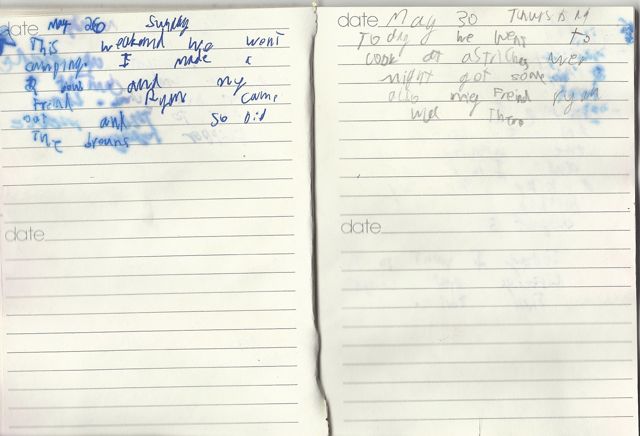 date May 26 Sunday
This weakend we went
camping. I made a
and my
Freind Ryan came
out and so Did
The brouns
date
date May 30 Thurs
Today we went to
Look at astriches
might got some
also my Freind Ryan
was There
date